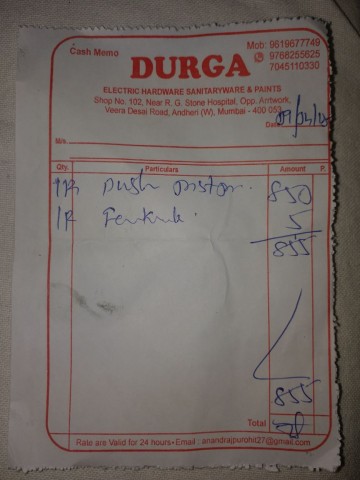 Cash Memo
Mob: 9619677749
9768255625
7045110330
DURGA
ELECTRIC HARDWARE SANITARYWARE & PAINTS
Shop No. 102, Near R. G. Stone Hospital, Opp. Amtwork,
Veera Desai Road, Andheri (W), Mumbai - 400 053
Date
M/s.
Qty. Particulars Amount P.
push 850
5
855
855
Total
Rate are Valid for 24 hours • Email : anandrajpurohit27@gmail.com